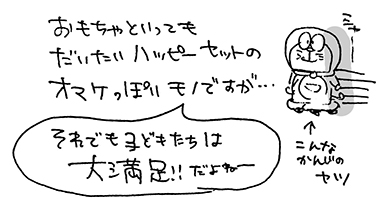 おもちゃといっても
だいたいハッピーセットの
オマケっぽいモノですが…
それでも子どもたちは
大満足!!だよねー
ミャー
↑
こんな
かんじの
ヤツ